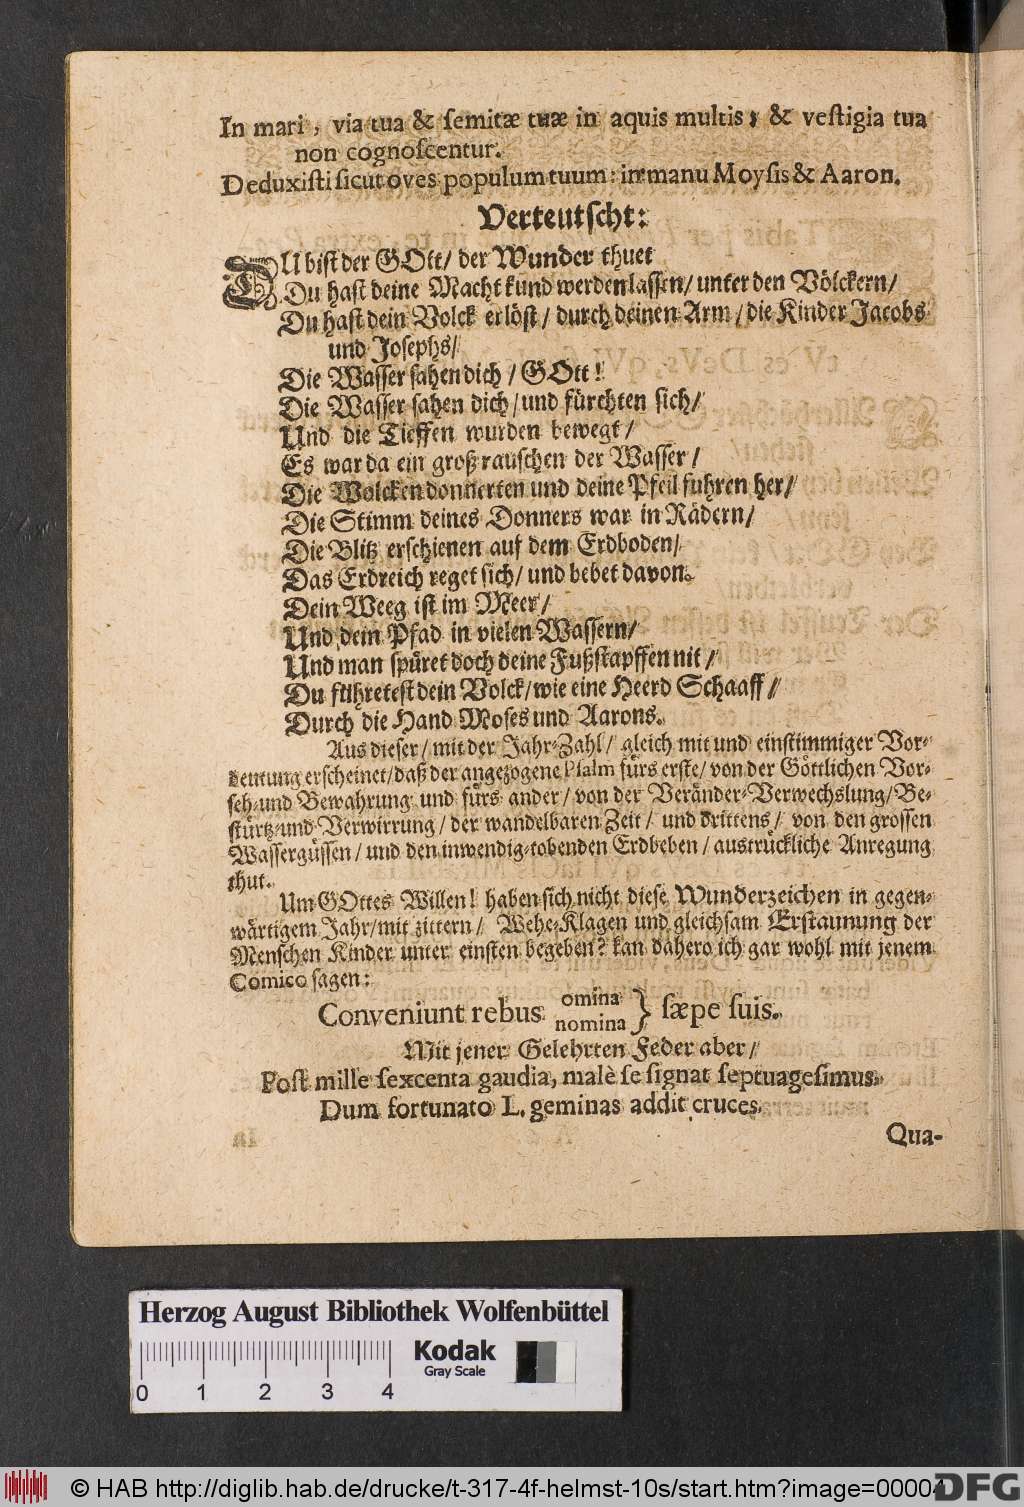 In mari, via tua & ſemitæ tuæ in aquis multis; & veſtigia tua
non cognoſcentur.
Deduxiſti ſicut oves populum tuum: in manu Moyſis & Aaron.
Verteutſcht:
DU biſt der GOtt/ der Wunder thuet
Du haſt deine Macht kund werden laſſen/ unter den Völckern/
Du haſt dein Volck erlöſt/ durch deinen Arm/ die Kinder Jacobs
und Joſephs/
Die Waſſer ſahen dich/ GOtt!
Die Waſſer ſahen dich/ und fürchten ſich/
Und die Tieffen wurden bewegt/
Es war da ein groß rauſchen der Waſſer/
Die Wolcken donnerten und deine Pfeil fuhren her/
Die Stimm deines Donners war in Rädern/
Die Blitz erſchienen auf dem Erdboden/
Das Erdreich reget ſich/ und bebet davon.
Dein Weeg iſt im Meer/
Und dein Pfad in vielen Waſſern/
Und man ſpüret doch deine Fußſtapffen nit/
Du führeteſt dein Volck/ wie eine Heerd Schaaff/
Durch die Hand Moſes und Aarons.
Aus dieſer/ mit der Jahr-Zahl/ gleich mit und einſtimmiger Vor-
deutung erſcheinet/ daß der angezogene Pſalm fürs erſte/ von der Göttlichen Vor-
ſeh- und Bewahrung und fürs ander/ von der Veränder-Verwechslung/ Be-
ſtürtz- und Verwirrung/ der wandelbaren Zeit/ und drittens/ von den groſſen
Waſſergüſſen/ und den inwendig-tobenden Erdbeben/ austrückliche Anregung
thut.
Um GOttes Willen! haben ſich nicht dieſe Wunderzeichen in gegen-
wärtigem Jahr/ mit zittern/ Wehe-Klagen und gleichſam Erſtaunung der
Menſchen Kinder unter einſten begeben? kan dahero ich gar wohl mit jenem
Comico ſagen:
Conveniunt rebus omina } ſæpe ſuis.
nomina
Mit jener Gelehrten Feder aber/
Poſt mille ſexcenta gaudia, malè ſe ſignat ſeptuageſimus.
Dum fortunato L. geminas addit cruces.
Qua-
Herzog August Bibliothek Wolfenbüttel
Kodak
Gray Scale
0 1 2 3 4
© HAB http://diglib.hab.de/drucke/t-317-4f-helmst-10s/start.htm?image=00004
DFG